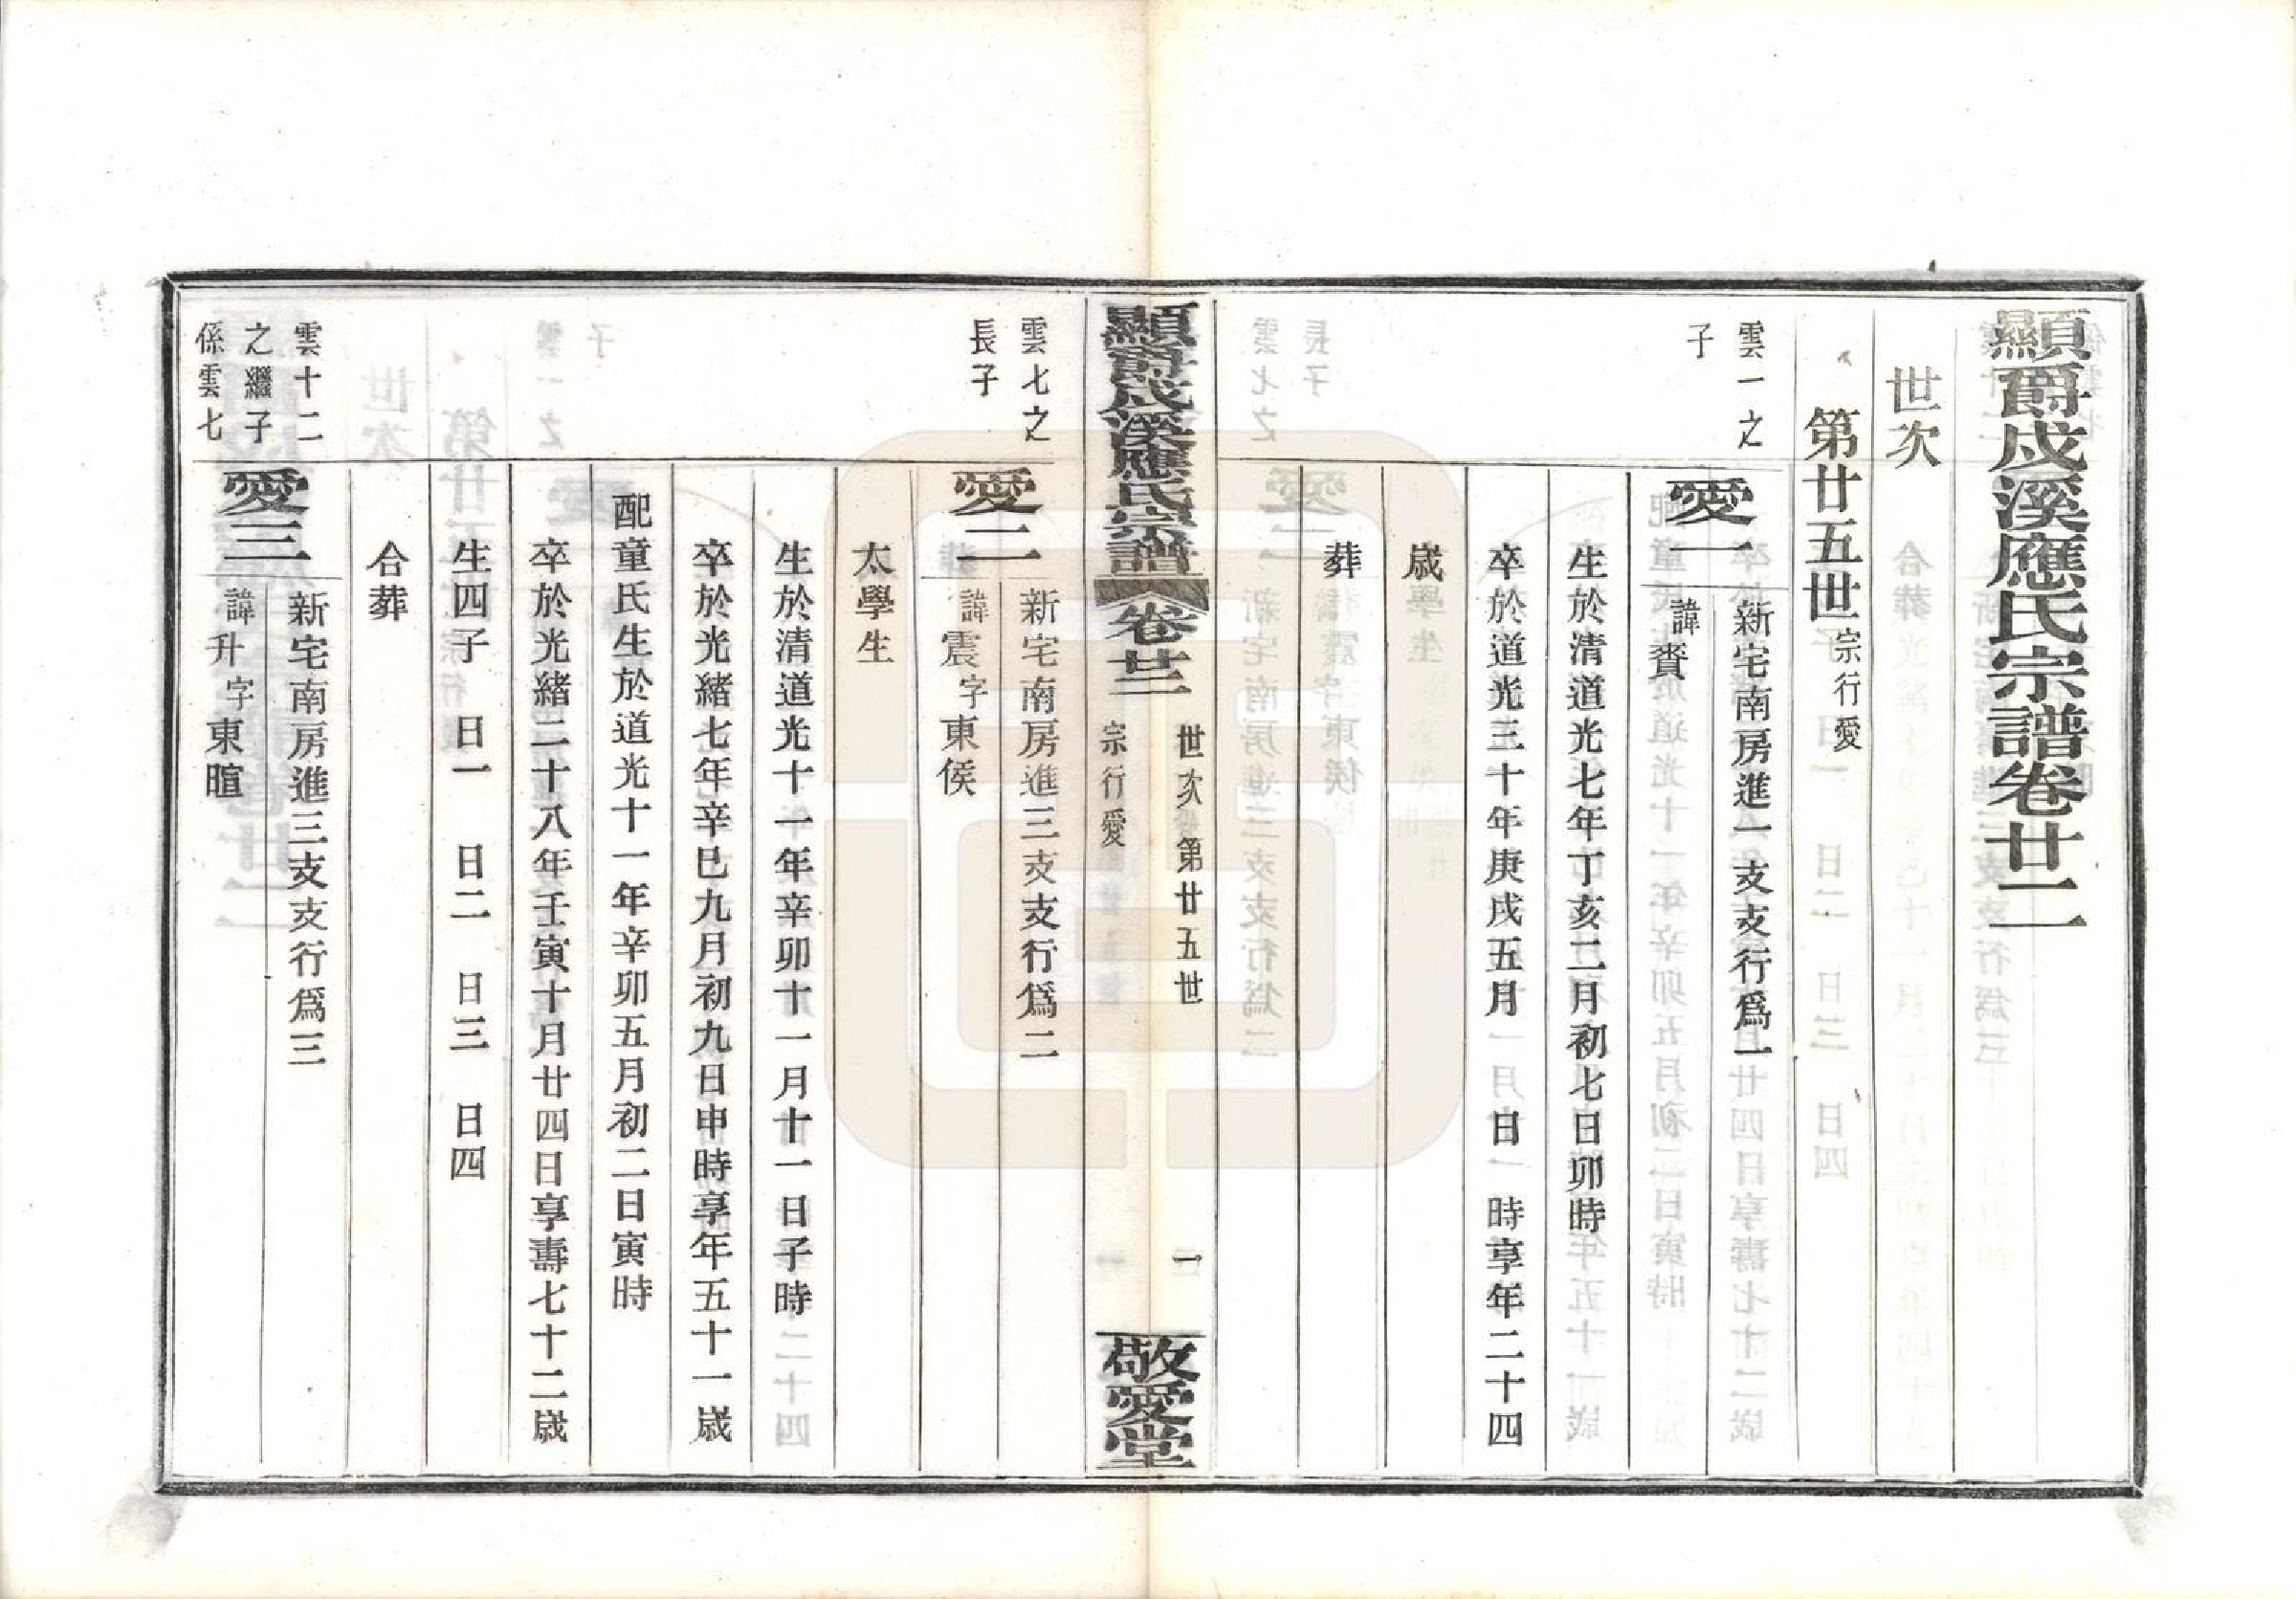 顯爵戍溪應氏宗譜卷廿二
世次
第廿五世宗行愛
雲一之
子
愛一
新宅南房進一支支行為一
諱賚
生於清道光七年丁亥二月初七日卯時
卒於道光三十年庚戌五月　日　時享年二十四
歲
葬
顯爵戍溪應氏宗譜
卷廿二
世次第廿五世
宗行愛
一
敬愛堂
雲七之
長子
愛二
新宅南房進三支支行爲二
諱震字東侯
太學生
生於清道光十一年辛卯十一月十一日子時
卒於光緒七年辛巳九月初九日申時享年五十一歲
配童氏生於道光十一年辛卯五月初二日寅時
卒於光緒二十八年壬寅十月廿四日享壽七十二歲
生四子　日一　日二　日三　日四
合葬
雲十二
之繼子
係雲七
愛三
新宅南房進三支支行爲三
諱升字東暄